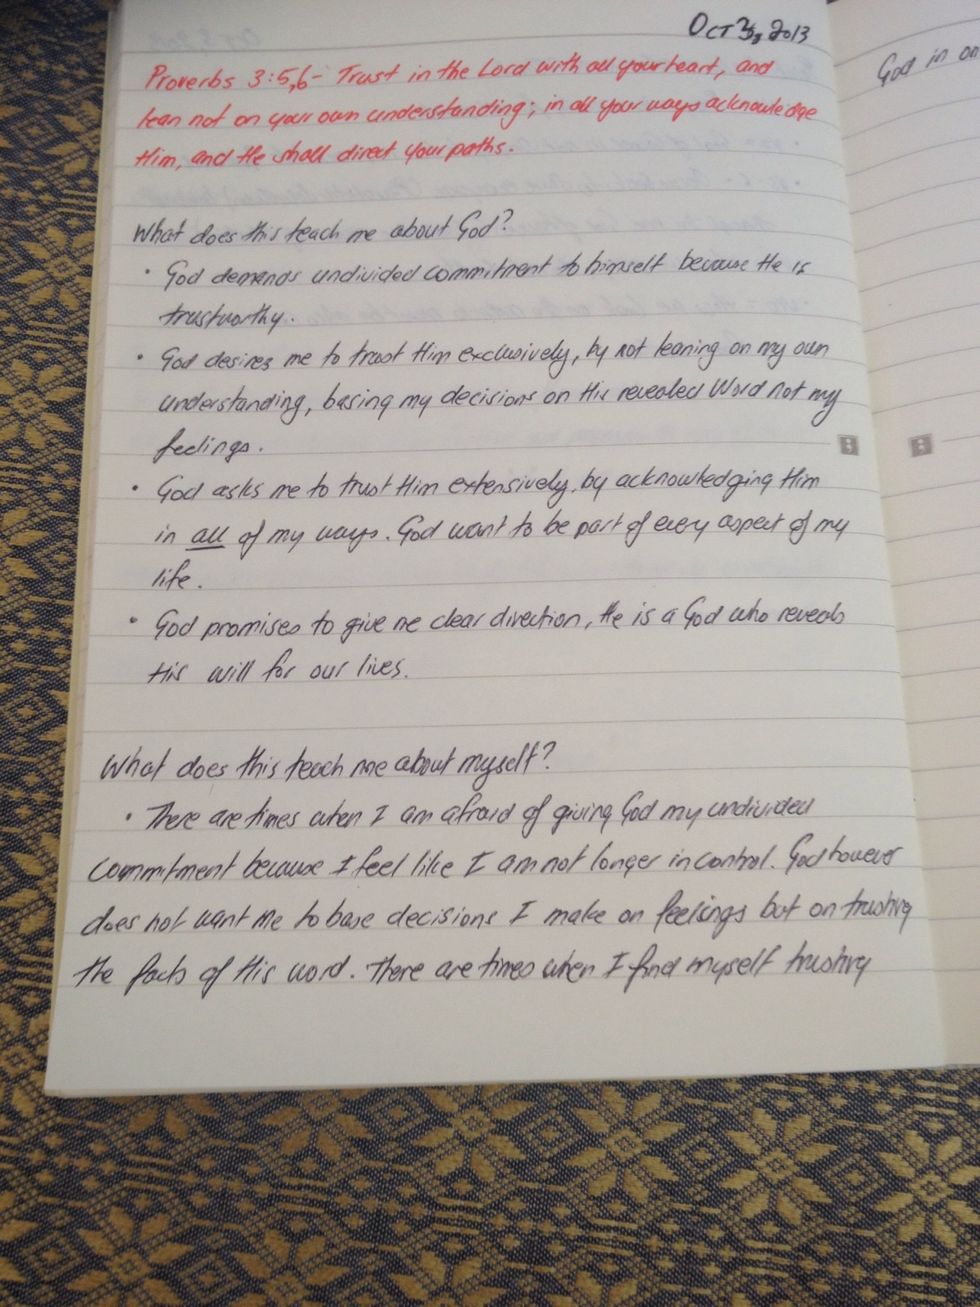 Oct 3, 2013
Proverbs 3:5,6- Trust in the Lord with all your heart, and
lean not on your own understanding; in all your ways acknowledge
Him, and He shall direct your paths.
What does this teach me about God?
• God demands undivided commitment to himself because He is
trustworthy.
• God desires me to trust Him exclusively, by not leaning on my own
understanding, basing my decisions on His revealed Word not my
feelings.
• God asks me to trust Him extensively, by acknowledging Him
in all of my ways. God want to be part of every aspect of my
life.
• God promises to give me clear direction, He is a God who reveals
His will for our lives.
What does this teach me about myself?
• There are times when I am afraid of giving God my undivided
commitment because I feel like I am not longer in control. God however
does not want me to base decisions I make on feelings but on trusting
the facts of His word. There are times when I find myself trusting
God in